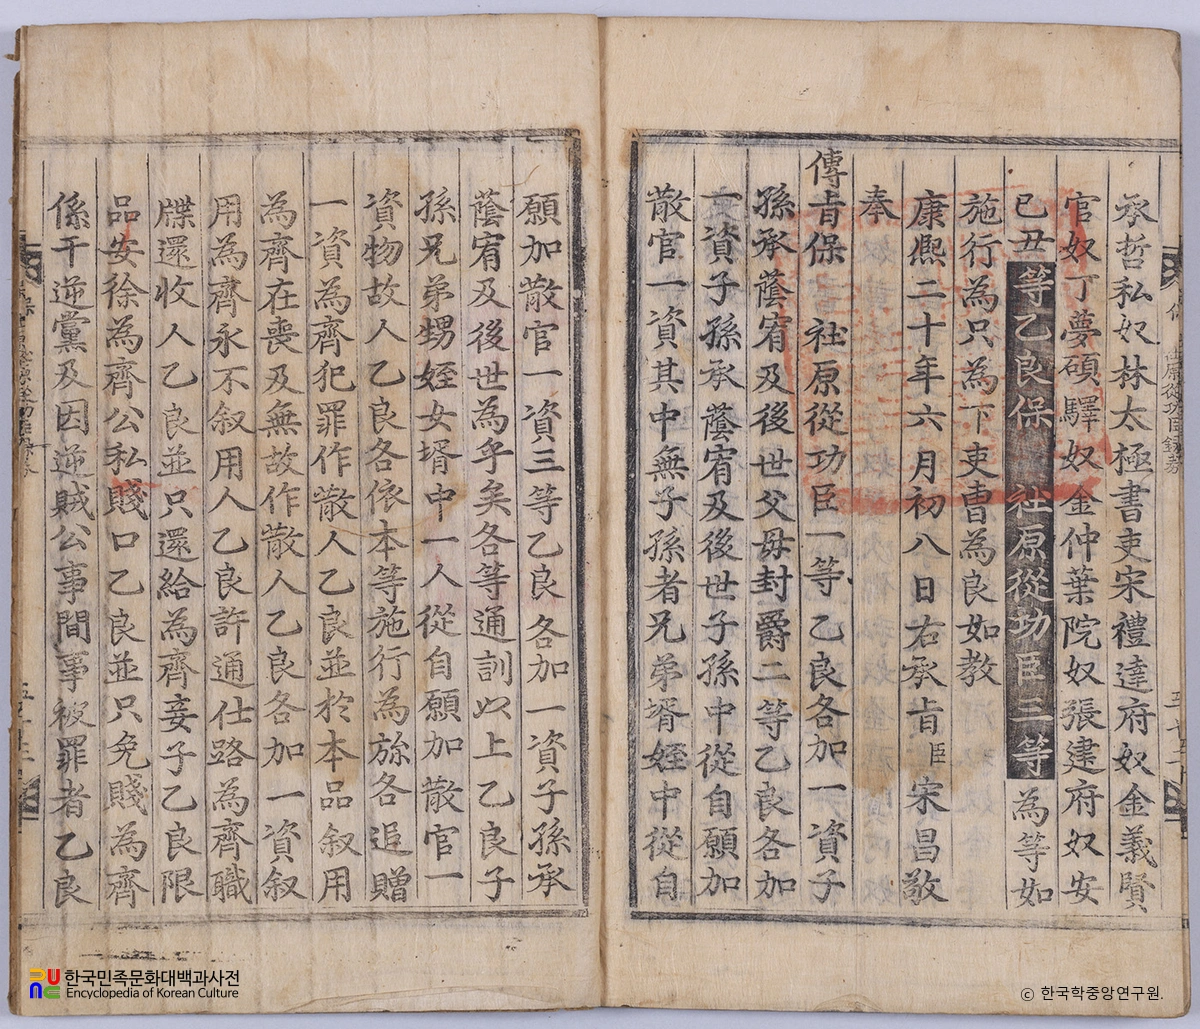 承哲私奴林太極書吏宋禮達府奴金義賢
官奴丁夢碩驛奴金仲葉院奴張建府奴安
已丑等乙良保社原從功臣三等為等如
施行為只為下吏曹為良如教
康熙二十年六月初八日右承旨臣宋昌敬
奉
傳旨保社原從功臣一等乙良各加一資子
孫承蔭宥及後世父母封爵二等乙良各加
一資子孫承蔭宥及後世子孫中從自願加
散官一資其中無子孫者兄弟壻姪中從自
願加散官一資三等乙良各加一資子孫承
蔭宥及後世為乎矣各等通訓以上乙良子
孫兄弟甥姪女壻中一人從自願加散官一
資物故人乙良各依本等施行為旀各追贈
一資為齊犯罪作散人乙良並於本品叙用
為齊在喪及無故作散人乙良各加一資叙
用為齊永不叙用人乙良許通仕路為齊職
牒還收人乙良並只還給為齊妾子乙良限
品安徐為齊公私賤口乙良並只免賤為齊
係干逆黨及因逆賊公事間事被罪者乙良
한국민족문화대백과사전
Encyclopedia of Korean Culture
ⓒ 한국학중앙연구원.